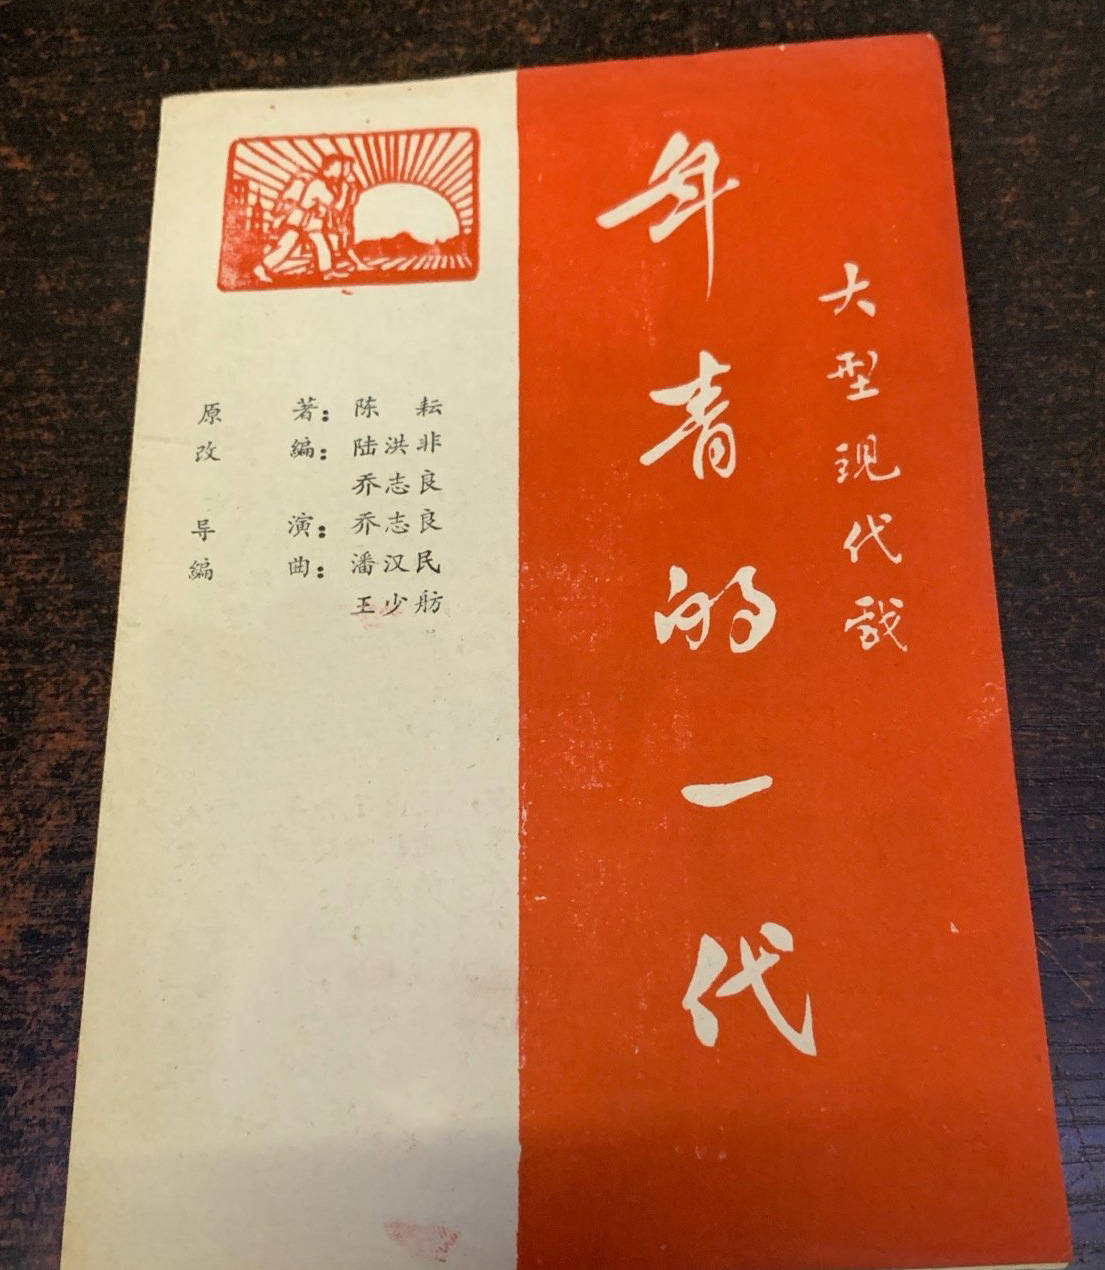 大型现代戏
年青的一代
原著：陈耘
改编：陆洪非
乔志良
导演：乔志良
编曲：潘汉民
王少舫